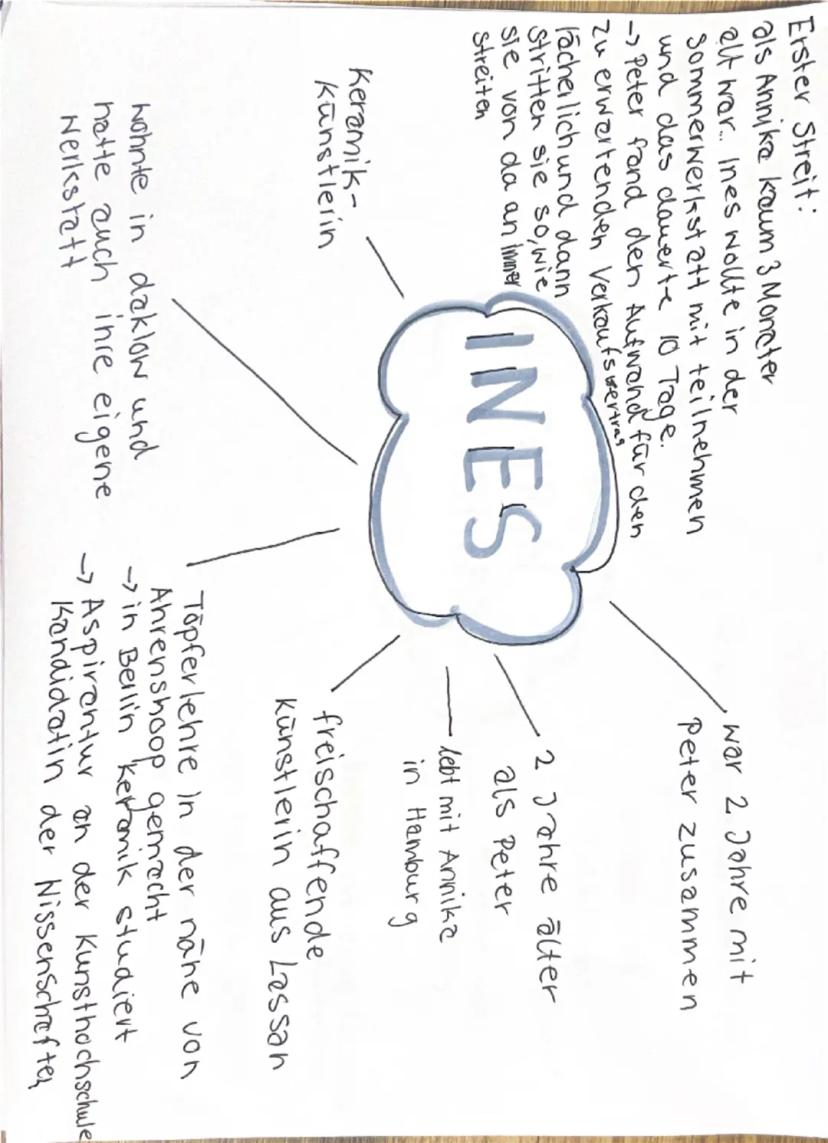 Erster Streit:
als Annika kaum 3 Monate
alt war.. Ines wollte in der
Sommerwerkstatt mit teilnehmen
und das dauerte 10 Tage.
→ Peter fand den Aufwand für den
zu erwartenden Verkaufsvertrag
lächelich und dann
stritten sie so, wie
sie von da an immer
streiten
Keramik-
Künstlerin
wohnte in daklow und
hatte auch ihre eigene
Werkstatt
INES
war 2 Jahre mit
Peter zusammen
2 Jahre älter
als Peter
lebt mit Annika
in Hamburg
freischaffende
Künstlerin aus Lassan
Töpferlehre in der nähe von
Ahrenshoop gemacht
→ in Berlin Keramik studiert
→ Aspirantur an der Kunsthochschule
Kandidatin der Wissenschaften